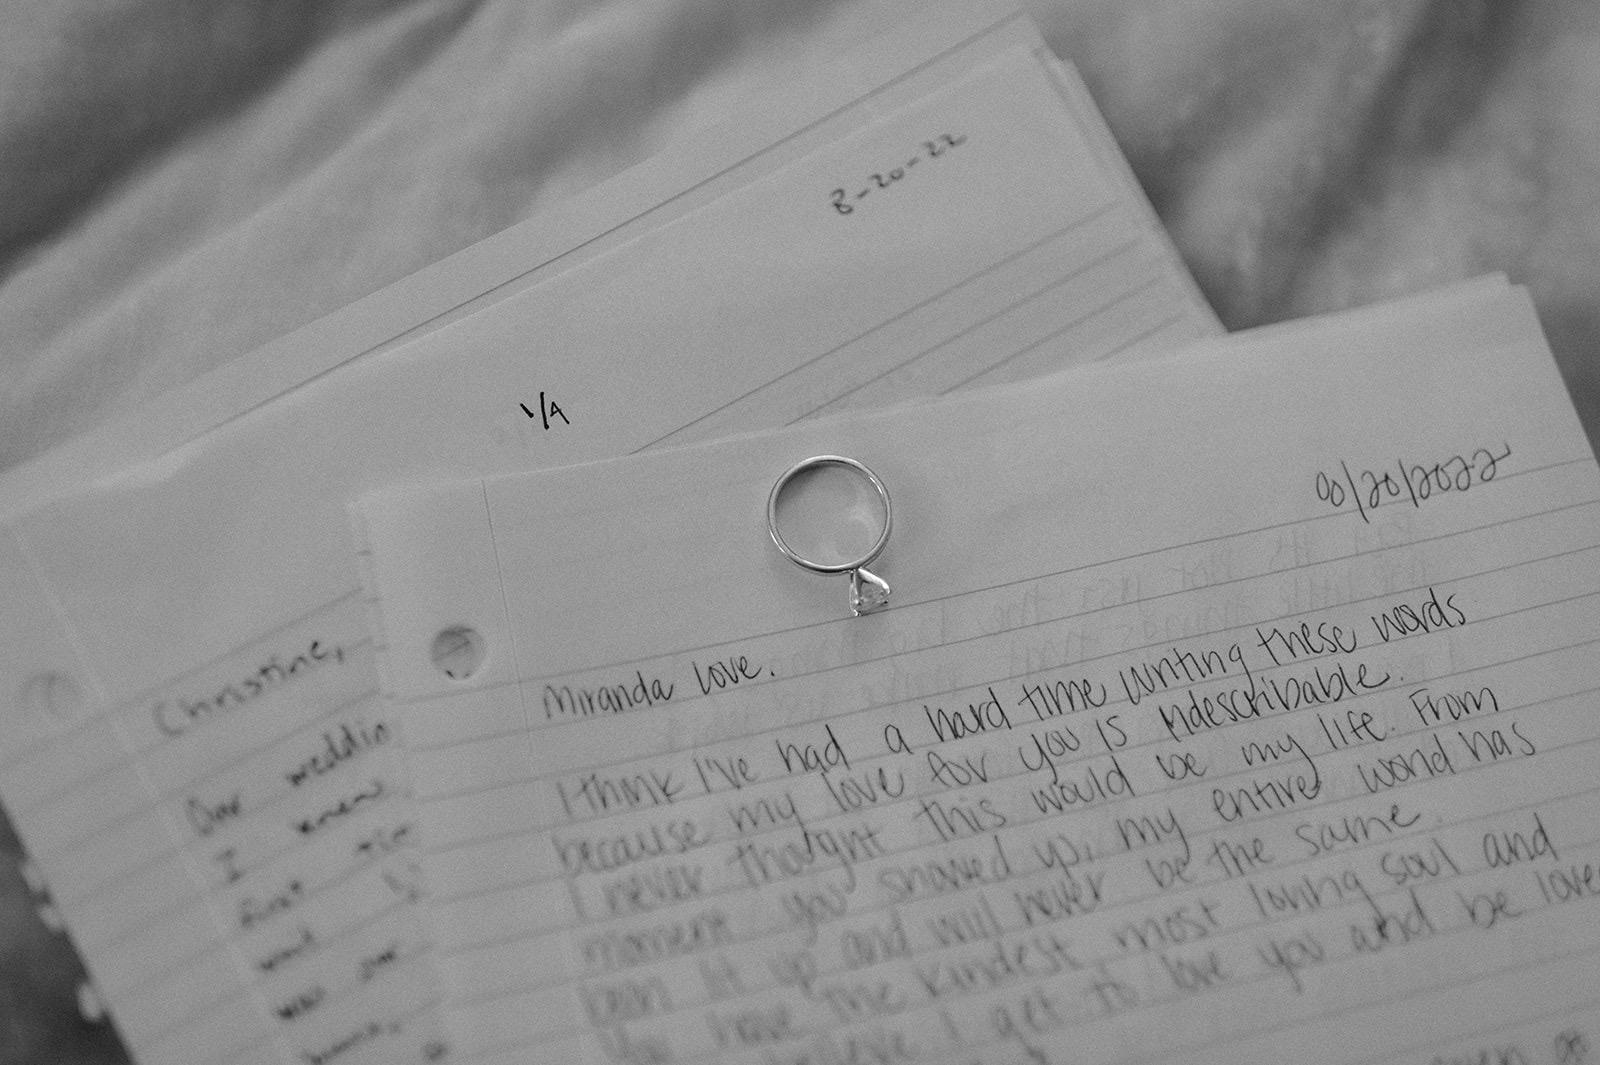 8-20-22
1/4
Christine,
Our weddin
I knew
first tim
was our
08/20/2022
Miranda love.
I think I've had a hard time writing these words
because my love for you is indescribable.
I never thought this would be my life. From
moment you showed up, my entire world has
been lit up and will never be the same.
You have the kindest most loving soul and
believe I get to love you and be love